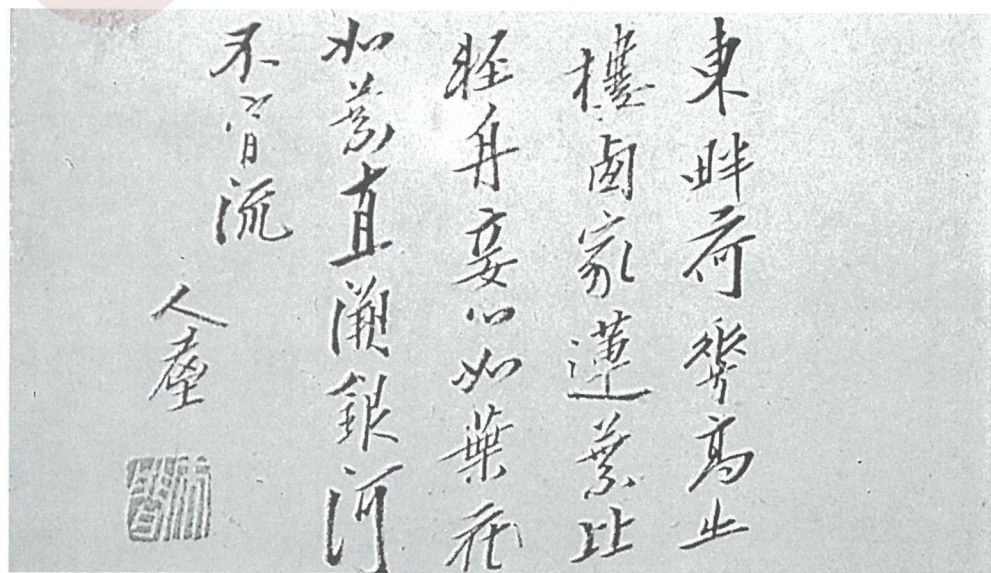 東畔荷華高出
樓西家蓮葉比
輕舟妾心如葉花
如葉直溯銀河
不肯流
人屋